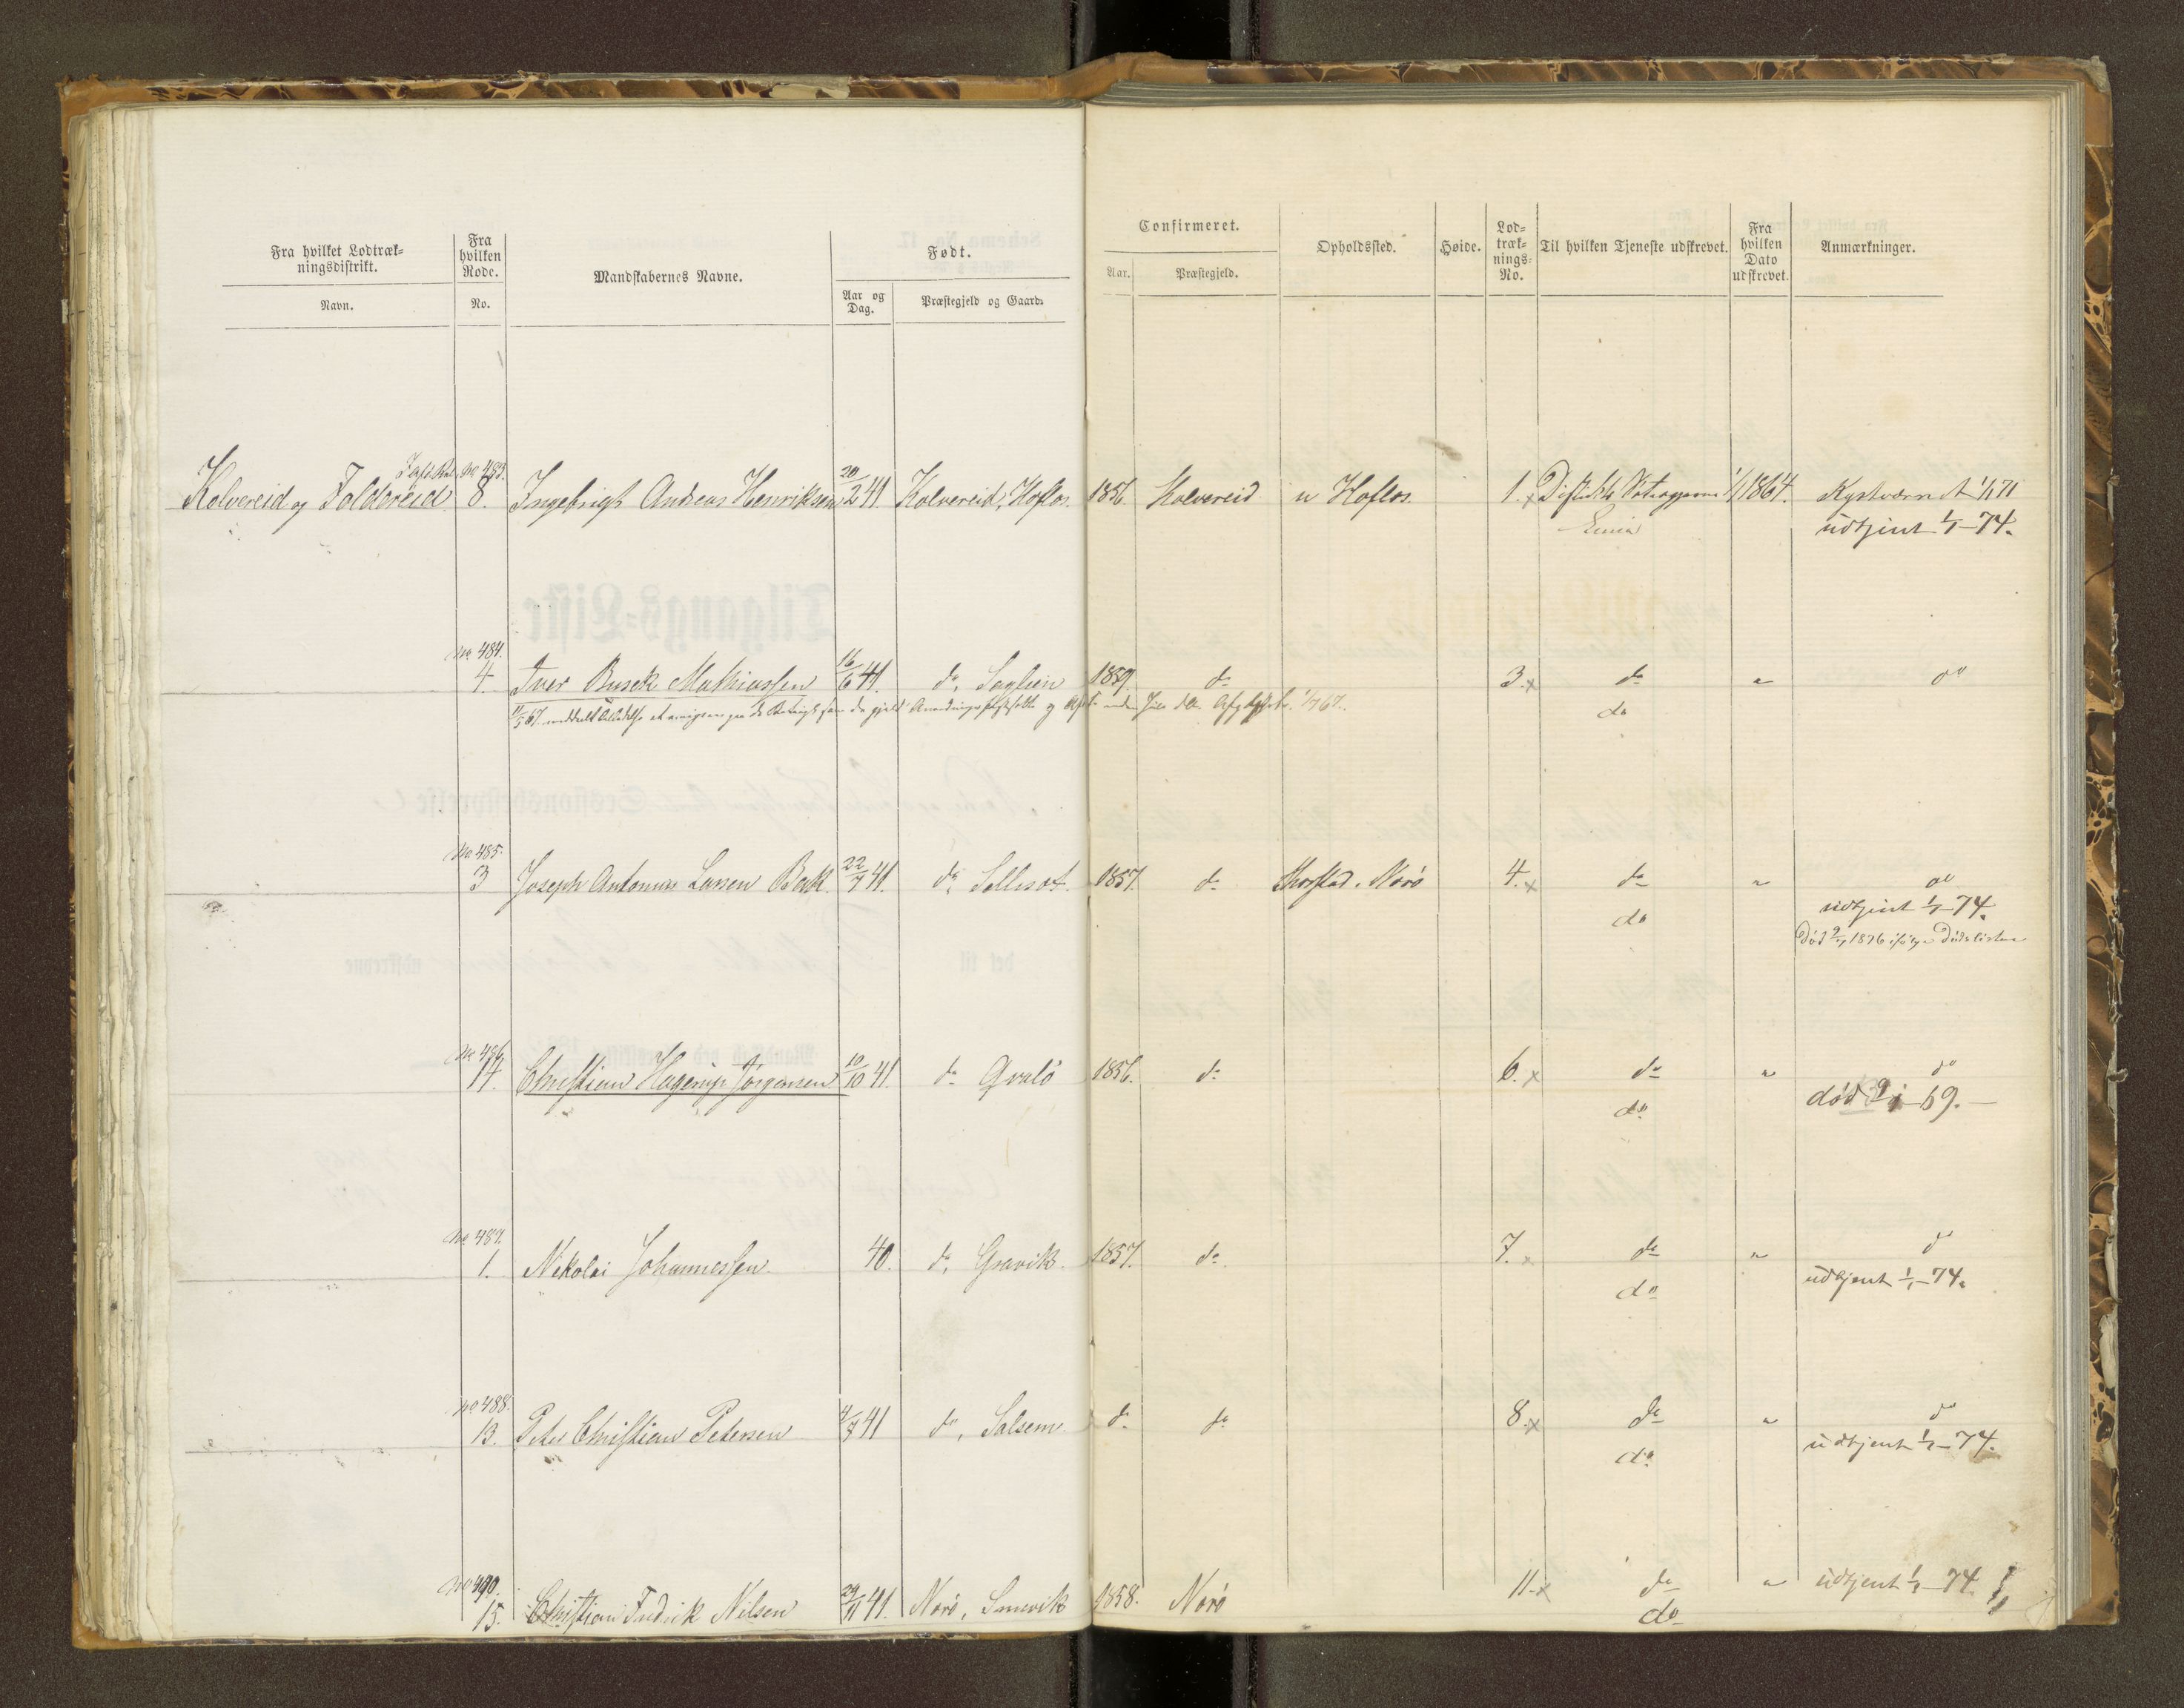 Fra hvilket Lodtræk-
ningsdistrikt.
Navn.
Fra
hvilken
Rode.
No.
Mandskabernes Navne.
Født.
Aar og
Dag.
Præstegjeld og Gaard.
Confirmeret.
Aar.
Præstegjeld.
Opholdssted.
Høide.
Lod-
træk-
nings-
No.
Til hvilken Tjeneste udskrevet.
Fra
hvilken
Dato
udskrevet.
Anmærkninger.
No 483.
Kolvereid og Foldereid 8. Ingebrigt Andreas Henriksen 20/2 41. Kolvereid, Hoflos. 1856. Kolvereid u Hoflos. 1. x Distrikts 1/1 1864. Kystværnet 1/1 71
Linia udtjent 1/1 74.
No 484.
4. Iver Busck Mathiassen 16/6 41. do, Saglien 1859. do 3. x do " do
do
No 485.
3 Joseph Antonius Larsen Bak. 22/7 41. do, 1857. do Nærö 4. x do " do
do udtjent 1/1 74.
Død 1876 ifølge Dødslisten
No 486.
14. Christian Hagerup Jörgensen 10/10 41. do Gvalö 1856. do 6. x do " do
do død 69.
No 487.
1. Nikolai Johannessen 40. do, Gravik 1857. do 7. x do " do
do udtjent 1/1 74.
No 488.
13. Peter Christian Petersen 4/7 41 do, Salsem do do 8. x do " do
do udtjent 1/1 74.
No 490.
15. Christian Fredrik Nilsen 29/11 41. Nærö, 1858. Nærö 11. x do " udtjent 1/1 74.
do